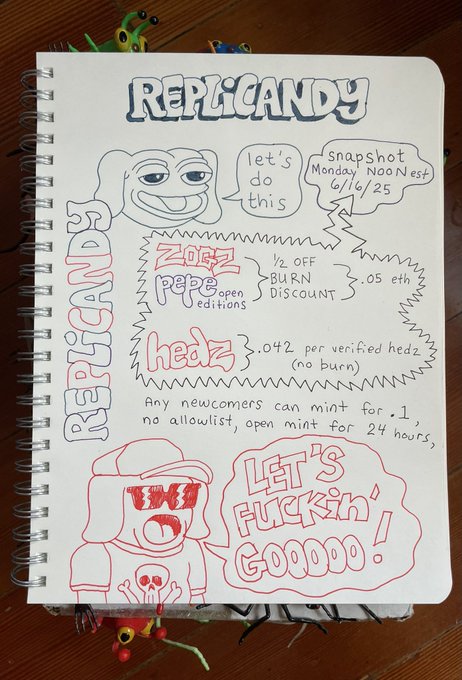 REPLICANDY
let's
do
this
snapshot
Monday NOON est
6/16/25
REPLICANDY
ZOGZ
pepe open
editions
1/2 OFF
BURN
DISCOUNT
.05 eth
hedz
.042 per verified hedz
(no burn)
Any newcomers can mint for .1,
no allowlist, open mint for 24 hours,
LET'S
FUCKiN'
GOOOOO!